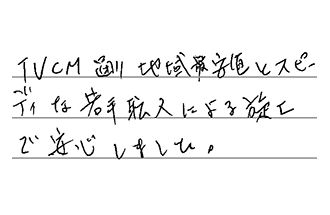 TVCM 通り 地域最安値とスピー
ディな若手職人による施工
で安心しました。